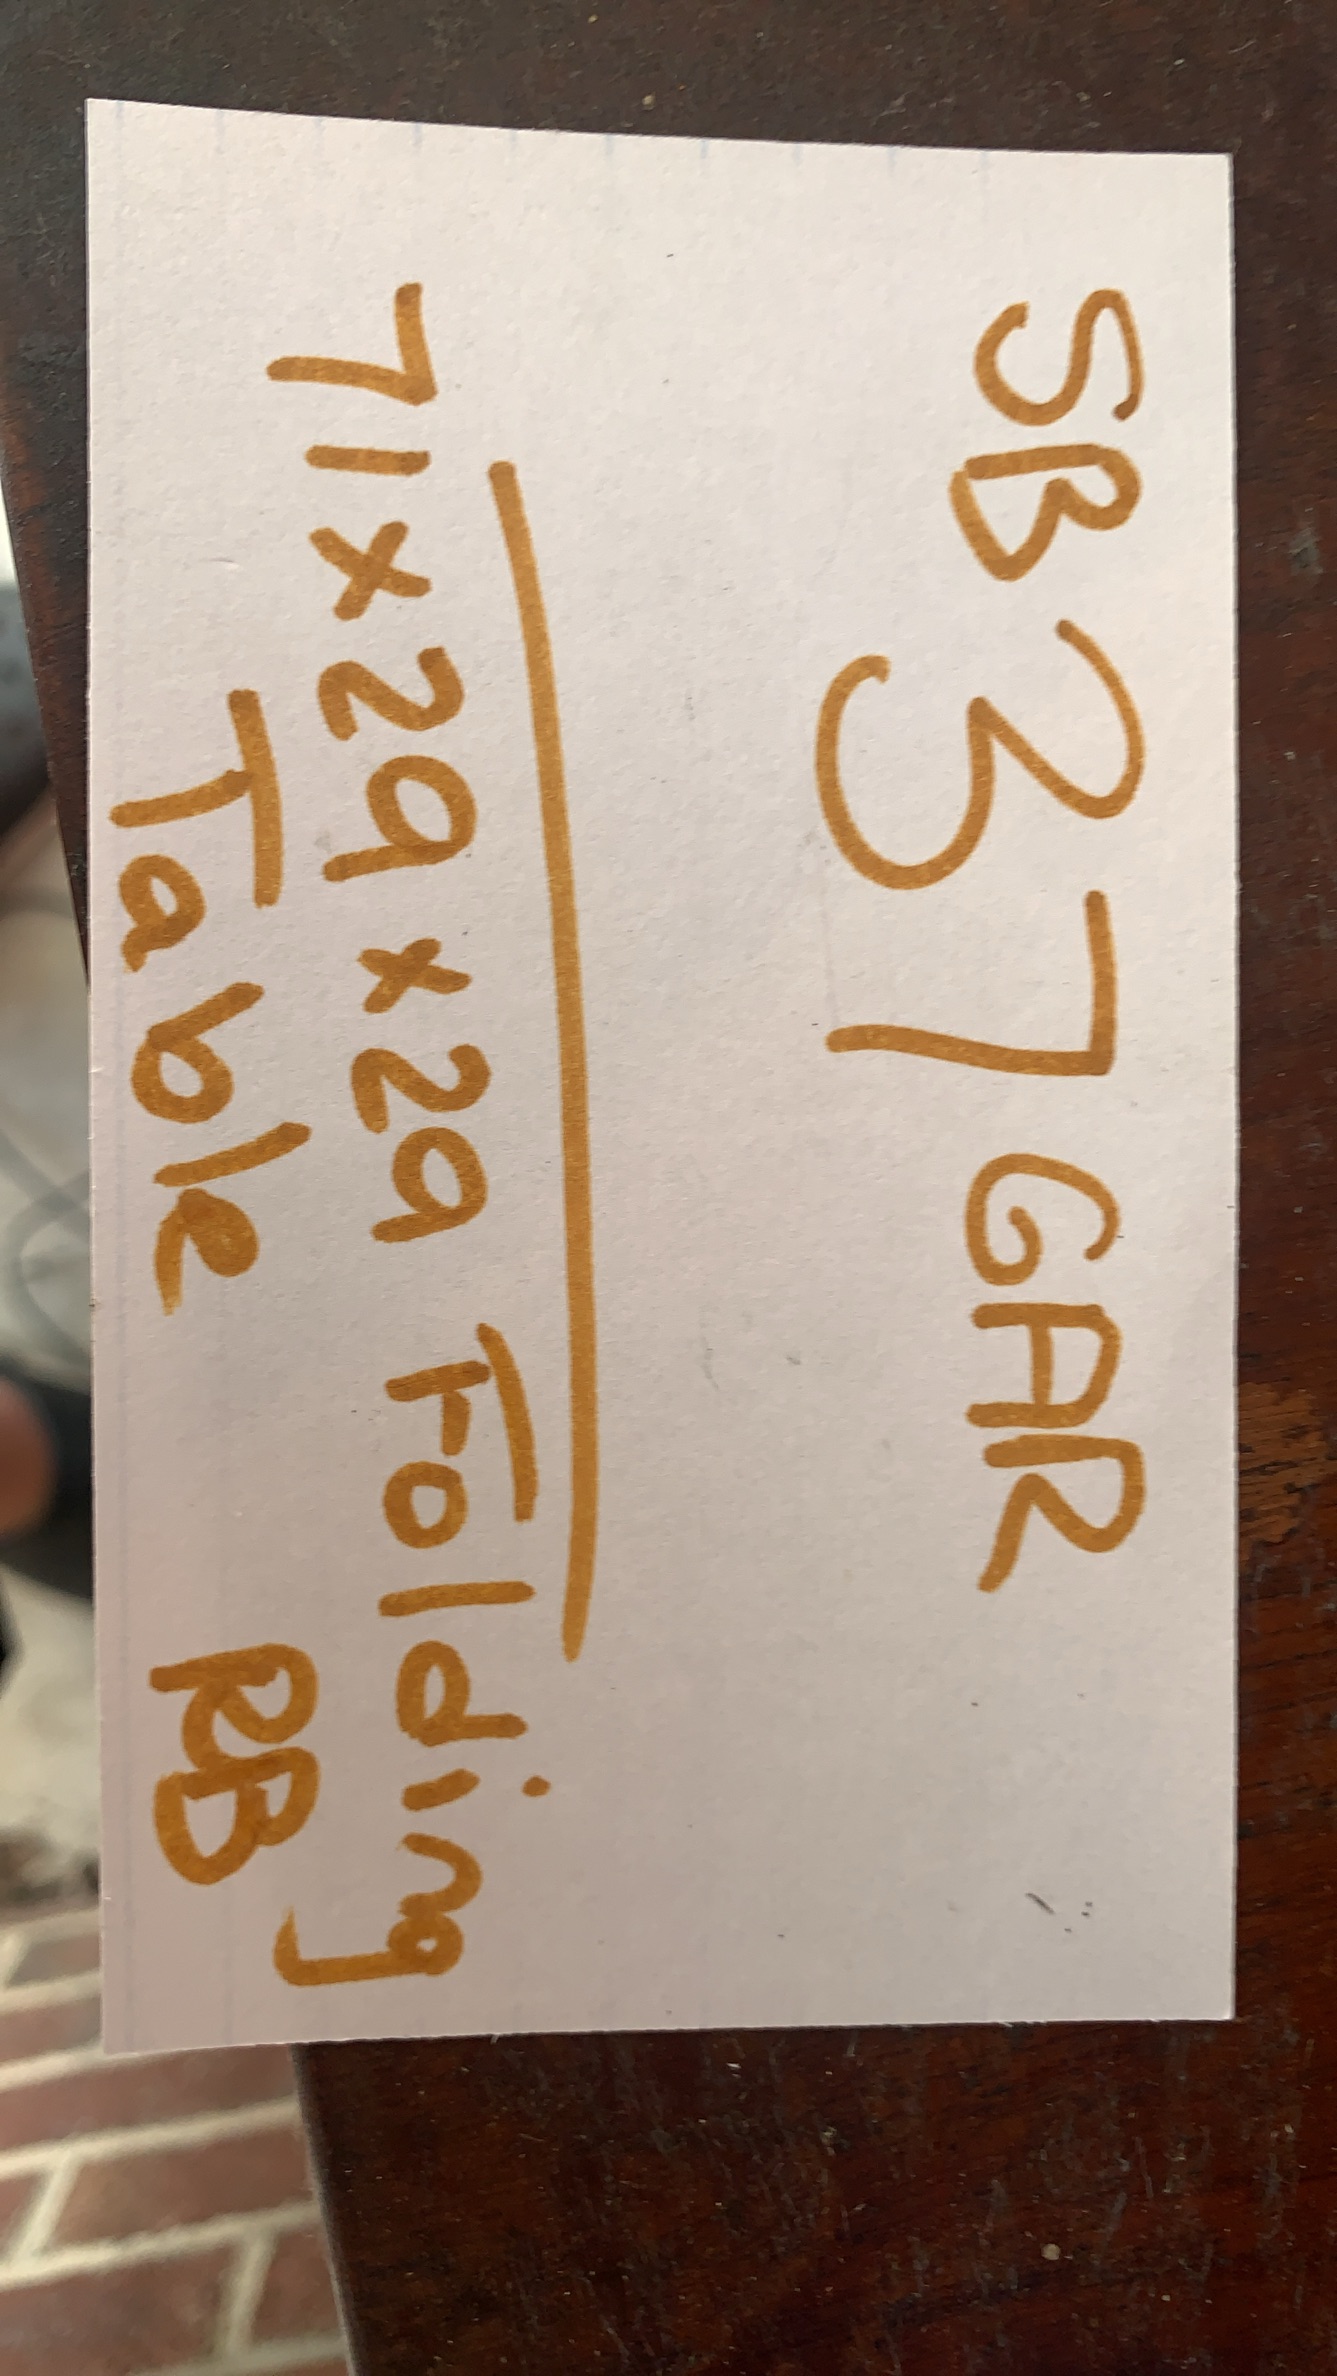 SB 37 GAR
71x29x29 Folding
Table RB